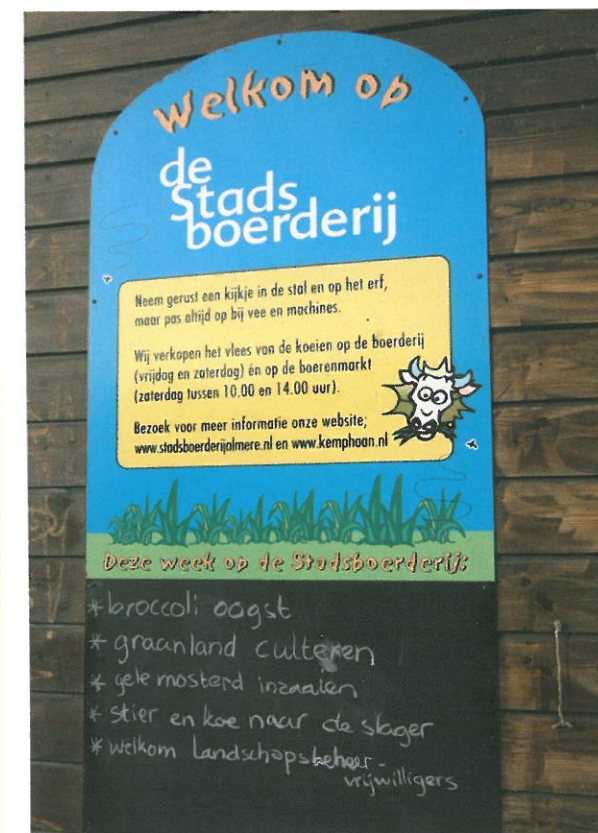 Welkom op
de
Stads
boerderij
Neem gerust een kijkje in de stal en op het erf,
maar pas altijd op bij vee en machines.
Wij verkopen het vlees van de koeien op de boerderij
(vrijdag en zaterdag) én op de boerenmarkt
(zaterdag tussen 10.00 en 14.00 uur).
Bezoek voor meer informatie onze website;
www.stadsboerderijalmere.nl en www.kemphaan.nl
Deze week op de Stadsboerderij:
*broccoli oogst
* graanland culteren
* gele mosterd inzaaien
* stier en koe naar de slager
* welkom Landschapsbeheer-
vrijwilligers